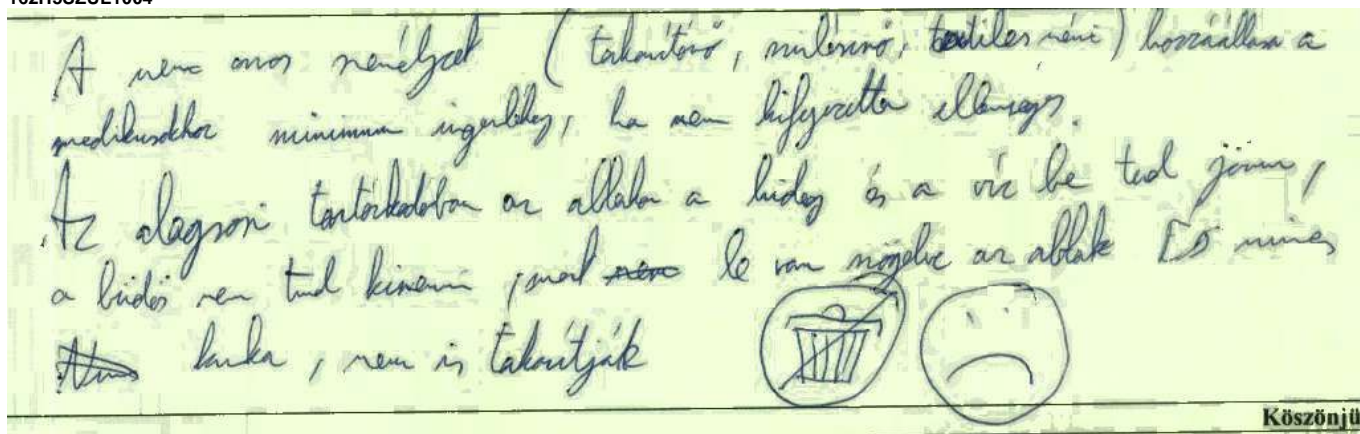 A nem orvos személyzet (takarítónő, műtősnő, textiles néni) hozzáállása a
medikusokhoz minimum ingerlékeny, ha nem kifejezetten ellenséges.
Az alagsori tantárkadóban az ablakon a hideg és a víz be tud jönni,
a büdös nem tud kimenni, mert le van szögelve az ablak ÉS nincs
kuka, nem is takarítják
Köszönjü